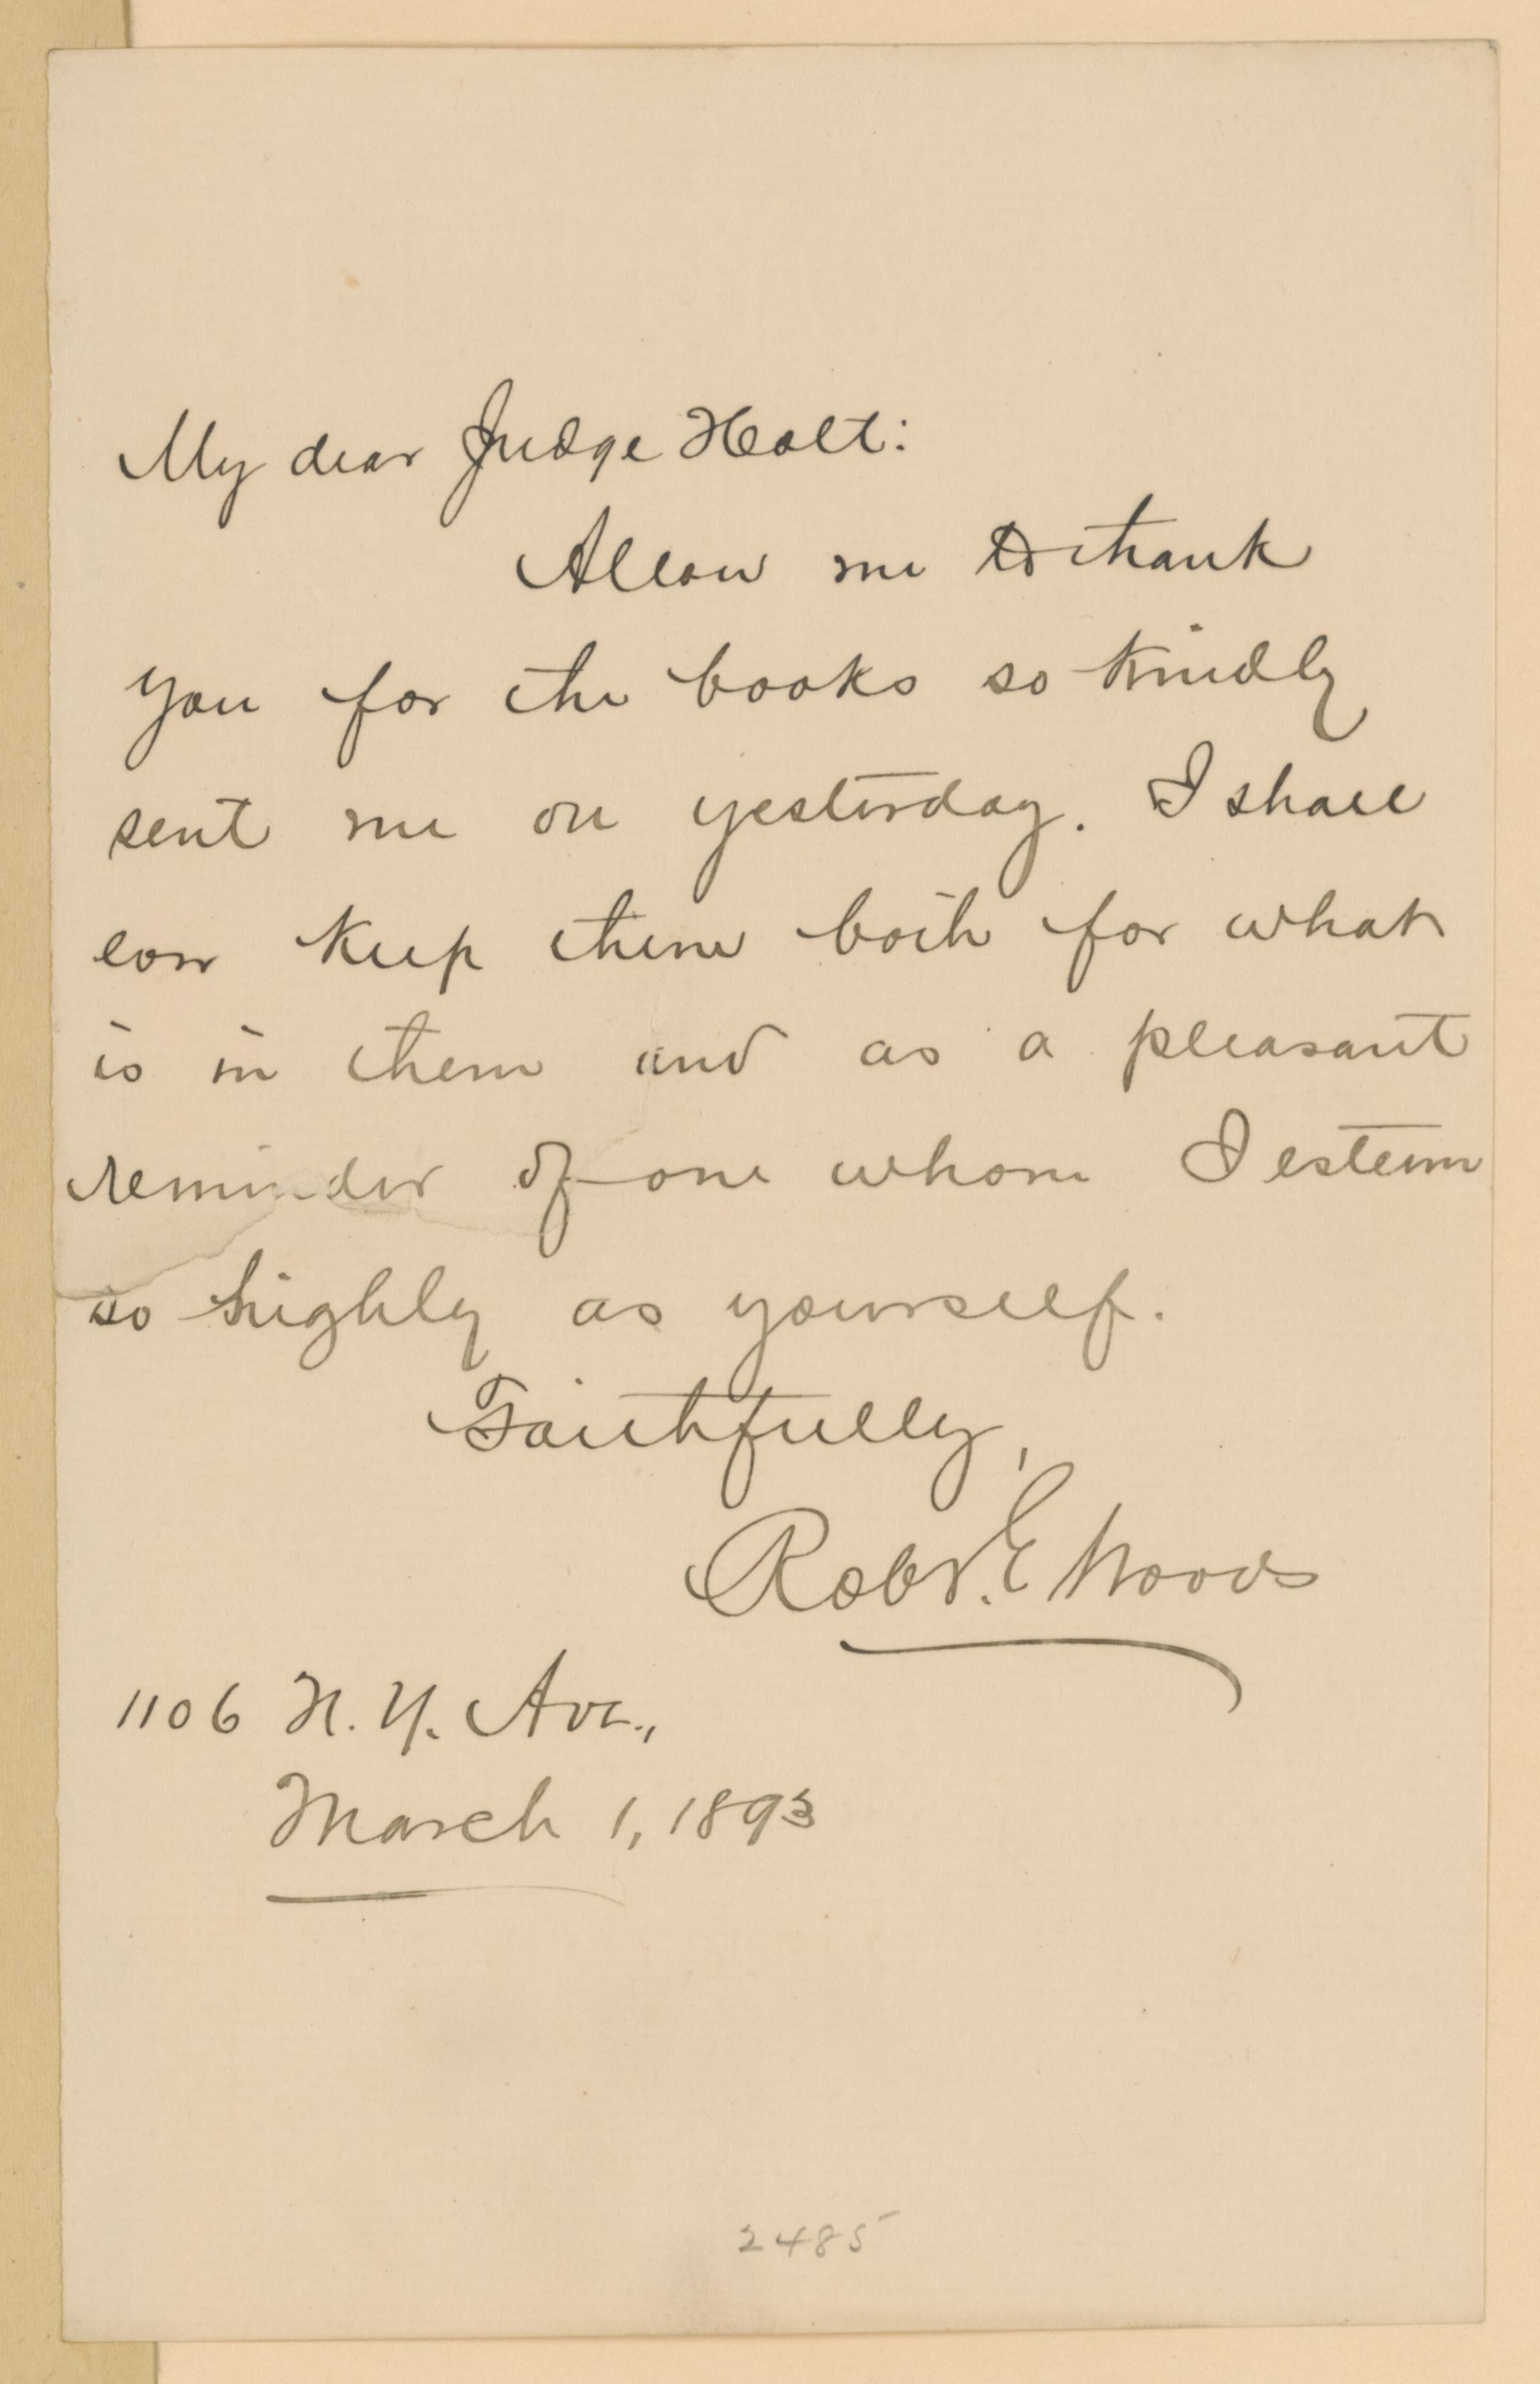 My dear Judge Holt:
Allow me to thank
you for the books so kindly
sent me on yesterday. I shall
ever keep them both for what
is in them and as a pleasant
reminder of one whom I esteem
so highly as yourself.
Faithfully,
Robt. E Woods
1106 N. Y. Ave.,
March 1, 1893
2485